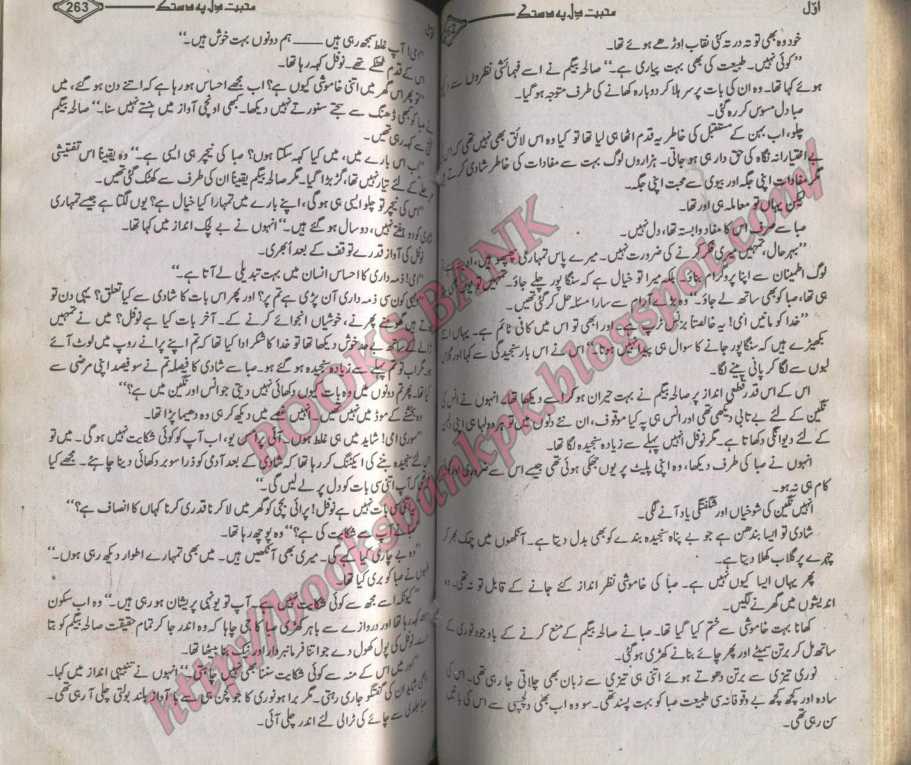 اوّل
محبت دل پہ دستک
خود وہ بھی تو تہ در تہ کئی نقاب اوڑھے ہوئے تھا۔
"کوئی نہیں۔ طبیعت کی بھی بہت پیاری ہے۔" صالحہ بیگم نے اسے فہمائشی نظروں سے
ہوئے کہا تھا۔ وہ ان کی بات پر سر ہلا کر دوبارہ کھانے کی طرف متوجہ ہو گیا۔
صبا دل مسوس کر رہ گئی۔
چلو، اب بہن کے مستقبل کی خاطر یہ قدم اٹھا ہی لیا تھا تو کیا وہ اس لائق بھی نہیں تھی کہ
بے اختیارانہ نگاہ کی حق دار ہی ہو جاتی۔ ہزاروں لوگ بہت سے مفادات کی خاطر شادی کرتے
مگر مفادات اپنی جگہ اور بیوی سے محبت اپنی جگہ۔
لیکن یہاں تو معاملہ ہی اور تھا۔
صبا سے صرف اس کا مفاد وابستہ تھا، دل نہیں۔
"بہرحال، تمہیں میری فکر کرنے کی ضرورت نہیں۔ میرے پاس تمہاری
لوگ اطمینان سے اپنا پروگرام بناؤ۔ بلکہ میرا تو خیال ہے کہ سنگاپور چلے جاؤ۔ تمہیں تو
ہی تھا، صبا کو بھی ساتھ لے جاؤ۔" وہ بڑے آرام سے سارا مسئلہ حل کر گئی تھیں۔
"خدا کو مانیں امی! یہ خالصتاً بزنس ٹرپ ہے۔ اور ابھی تو اس میں کافی ٹائم ہے۔ یہاں
بکھیڑے ہیں کہ سنگاپور جانے کا سوال ہی پیدا نہیں ہوتا۔" اس نے اس بار سنجیدگی سے کہا اور
لبوں سے لگا کر پانی پینے لگا۔
اس کے اس قدر قطعی انداز پر صالحہ بیگم نے بہت حیران ہو کر اسے دیکھا تھا۔ انہوں نے انس کی
نگین کے لئے بے تابی دیکھی تھی اور انس ہی پہ کیا موقوف، ان نئے دنوں میں تو ہر دولہا ہی اپنی
کے لئے دیوانگی دکھاتا ہے۔ مگر نوفل انہیں پہلے سے زیادہ سنجیدہ لگا تھا۔
انہوں نے صبا کی طرف دیکھا، وہ اپنی پلیٹ پر یوں جھکی ہوئی تھی جیسے اس سے ضروری اور
کام ہی نہ ہو۔
انہیں نگین کی شوخیاں اور شگفتگی یاد آنے لگی۔
شادی تو ایسا بندھن ہے جو بے پناہ سنجیدہ بندے کو بھی بدل دیتا ہے۔ آنکھوں میں چمک بھر کر
چہرے پر گلاب کھلا دیتا ہے۔
پھر یہاں ایسا کیوں نہیں ہے۔ صبا کی خاموشی نظر انداز کئے جانے کے قابل تو نہ تھی۔
اندیشوں میں گھرنے لگیں۔
کھانا بہت خاموشی سے ختم کیا گیا تھا۔ صبا نے صالحہ بیگم کے منع کرنے کے باوجود نوری کے
ساتھ مل کر برتن سمیٹے اور پھر چائے بنانے کھڑی ہو گئی۔
نوری تیزی سے برتن دھوتے ہوئے اتنی ہی تیزی سے زبان بھی چلاتی جا رہی تھی۔ اس کی
سادہ اور کچھ کچھ بے وقوفانہ سی طبیعت صبا کو بہت پسند تھی۔ سو وہ اب بھی دلچسپی سے اس کی باتیں
سن رہی تھی۔
محبت دل پہ دستک
263
"امی! آپ غلط سمجھ رہی ہیں ____ ہم دونوں بہت خوش ہیں۔"
اس کے قدم ٹھٹکے تھے۔ نوفل کہہ رہا تھا۔
"تو پھر اس گھر میں اتنی خاموشی کیوں ہے؟ اب مجھے احساس ہو رہا ہے کہ اتنے دن ہو گئے، میں
نے صبا کو کبھی ڈھنگ سے سجتے سنورتے نہیں دیکھا۔ کبھی اونچی آواز میں ہنستے نہیں سنا۔" صالحہ بیگم
سے کہہ رہی تھیں۔
"اب اس بارے میں، میں کیا کہہ سکتا ہوں؟ صبا کی نیچر ہی ایسی ہے۔" وہ یقیناً اس تفتیشی
کے لئے تیار نہیں تھا، گڑبڑا گیا۔ مگر صالحہ بیگم یقیناً ان کی طرف سے کھٹک گئی تھیں۔
"اس کی نیچر تو چلو ایسی ہی ہو گی، اپنے بارے میں تمہارا کیا خیال ہے؟ یوں لگتا ہے جیسے تمہاری
کو دو ہفتے نہیں، دو سال ہو گئے ہیں۔" انہوں نے بے لچک انداز میں کہا تھا۔
نوفل کی آواز قدرے توقف کے بعد اُبھری۔
"امی! ذمہ داری کا احساس انسان میں بہت تبدیلی لے آتا ہے۔"
کون سی ذمہ داری آن پڑی ہے تم پر؟ اور پھر اس بات کا شادی سے کیا تعلق؟ یہی دن تو
ہیں گھومنے پھرنے، خوشیاں انجوائے کرنے کے۔ آخر بات کیا ہے نوفل؟ میں نے تمہیں
کے ساتھ بے حد خوش دیکھا تھا تو خدا کا شکر ادا کیا تھا کہ تم اپنے پرانے روپ میں لوٹ آئے
مگر اب تو تم پہلے سے زیادہ سنجیدہ ہو گئے ہو۔ صبا سے شادی کا فیصلہ تم نے سو فیصد اپنی مرضی سے
کیا تھا۔ پھر تم دونوں میں وہ بات کیوں دکھائی نہیں دیتی جو انس اور نگین میں ہے؟"
وہ بخشنے کے موڈ میں نہیں تھیں۔ انہیں غصے میں دیکھ کر ہی وہ دھیما پڑا تھا۔
"سوری امی! شاید میں ہی غلط ہوں۔ آئی پرامس یو، اب آپ کو کوئی شکایت نہیں ہو گی۔ میں تو
سنجیدہ بننے کی ایکٹنگ کر رہا تھا کہ شادی کے بعد آدمی کو ذرا سوبر دکھائی دینا چاہئے۔ مجھے کیا
کہ آپ اتنی سی بات کو دل پر لے لیں گی۔"
سی بات نہیں ہے نوفل! پرائی بچی کو گھر میں لا کر ناقدری کرنا کہاں کا انصاف ہے؟"
سے شکایت کی ہے؟" وہ پوچھ رہا تھا۔
"وہ بے چاری کیا کہے گی۔ میری بھی آنکھیں ہیں۔ میں بھی تمہارے اطوار دیکھ رہی ہوں۔"
انہوں نے صبا کو بری کیا تھا۔
"کیونکہ اسے مجھ سے کوئی شکایت نہیں ہے۔ آپ تو یونہی پریشان ہو رہی ہیں۔" وہ اب سکون
سے کہہ رہا تھا اور دروازے سے باہر کھڑی صبا کا جی چاہا کہ وہ اندر جا کر تمام حقیقت صالحہ بیگم کو بتا
نوفل کی پول کھول دے جو اتنا فرمانبردار اور نیک بنا بیٹھا تھا۔
میں اس کے منہ سے کوئی شکایت سننا بھی نہیں چاہتی۔" انہوں نے تنبیہی انداز میں کہا۔
ابھی شاید ان کی گفتگو جاری رہتی۔ مگر برا ہو نوری کا جو کچن ہی سے با آواز بلند بولتی چلی آ رہی تھی۔
صبا جلدی سے چائے کی ٹرالی لئے اندر چلی آئی۔
BOOKS BANK
http://booksbankpk.blogspot.com/